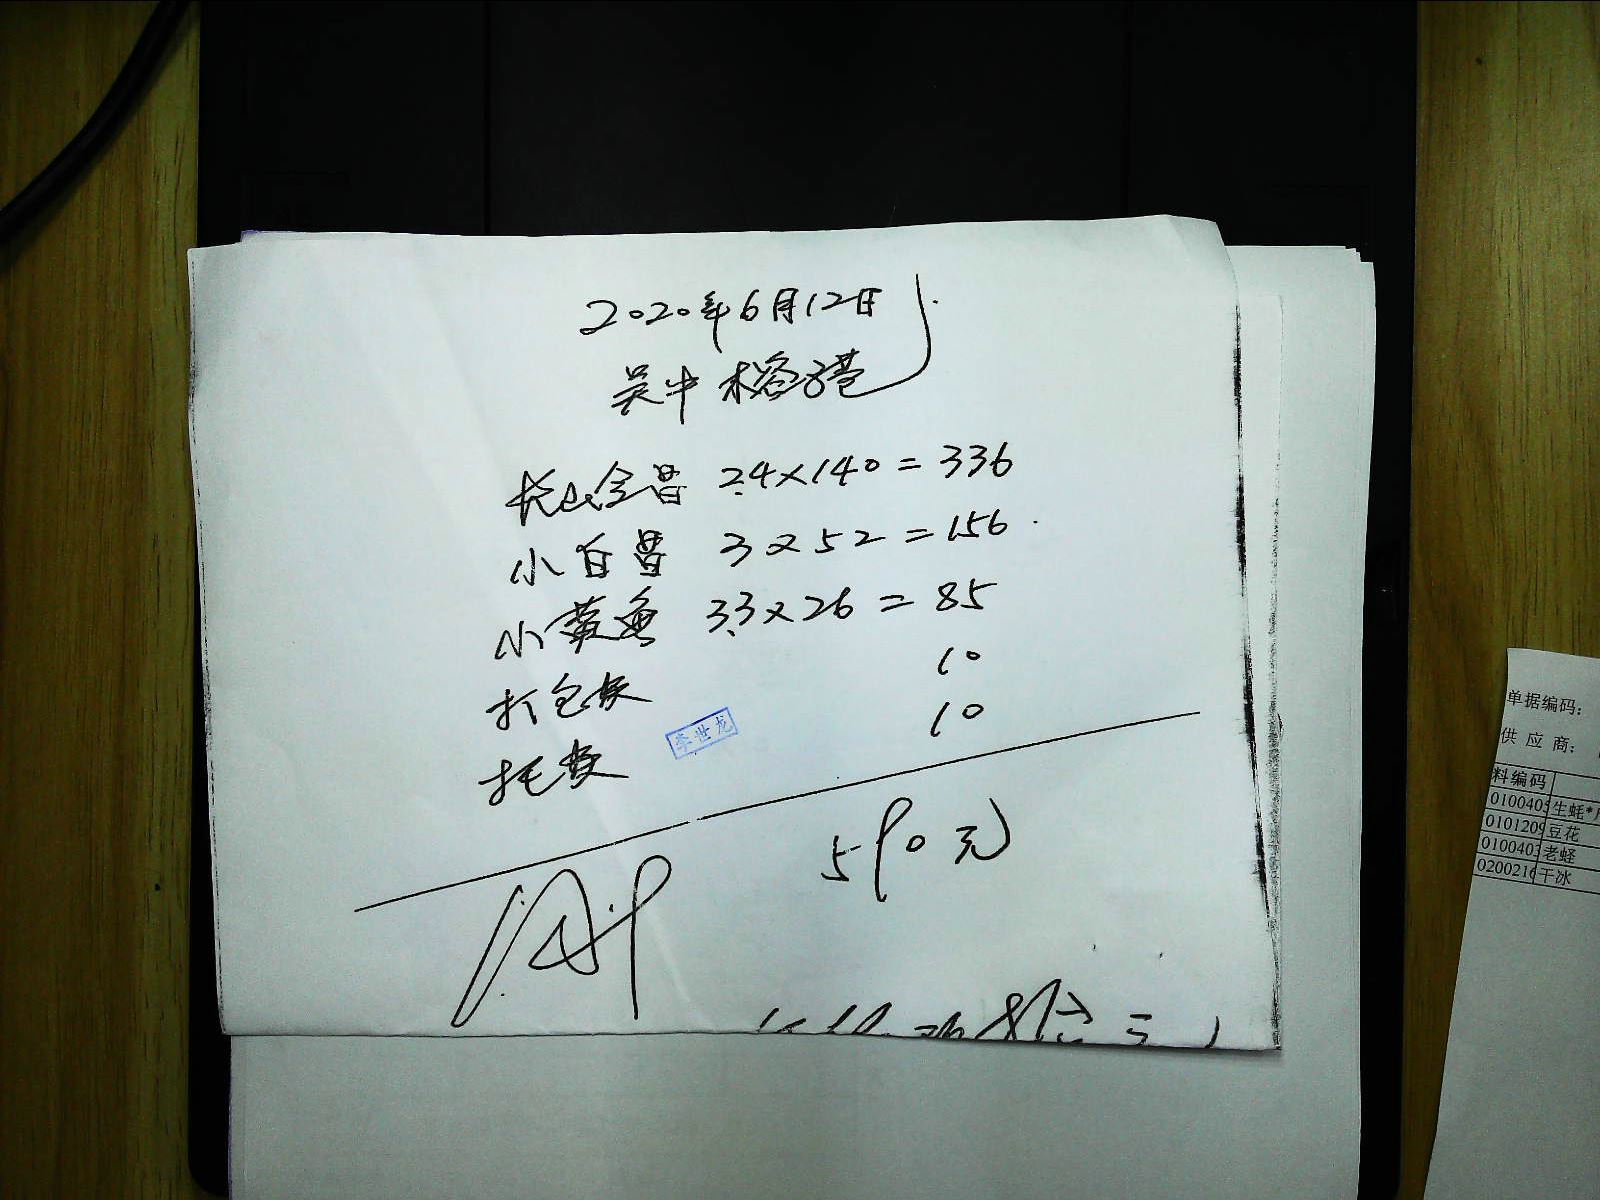 2020年6月12日
吴中 榕港
2.4×140=336
小白昌 3×52=156
小黄鱼 3.3×26=85
打包费 10
托费 10
李世龙
590元
单据编码:
供 应 商:
料编码
010040 生蚝*
0101209 豆花
010040 老蛏
020021 干冰